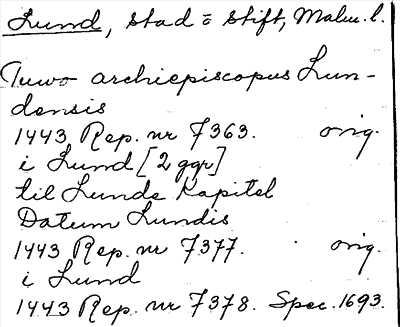 Lund, stad o stift, Malm. l.
Tuwo archiepiscopus Lun-
densis
1443 Rep. nr 7363. orig.
i Lund [2 ggr]
til Lunde Kapitel
Datum Lundis
1443 Rep. nr 7377. orig.
i Lund
1443 Rep. nr 7378. Spec. 1693.